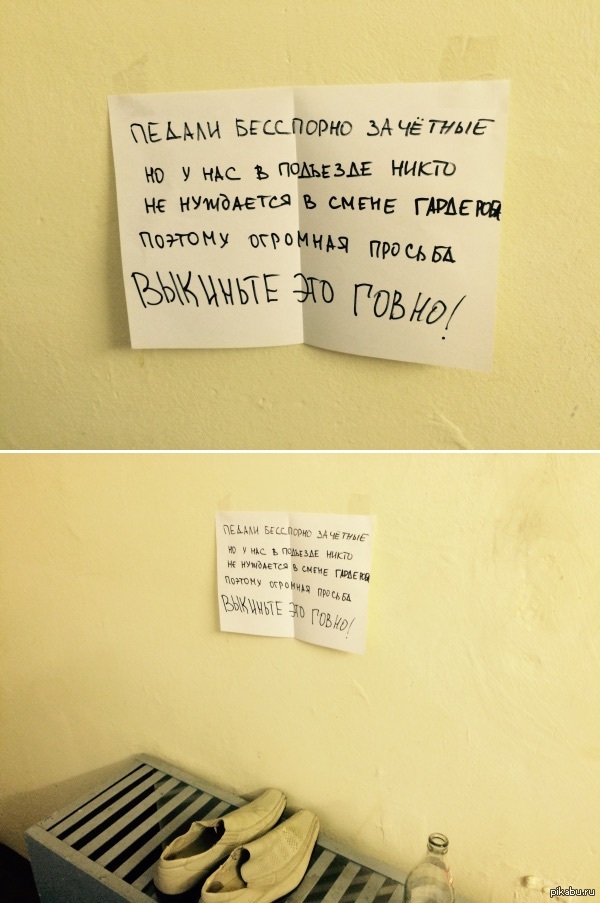 ПЕДАЛИ БЕССПОРНО ЗАЧЁТНЫЕ
НО У НАС В ПОДЪЕЗДЕ НИКТО
НЕ НУЖДАЕТСЯ В СМЕНЕ ГАРДЕРОБА
ПОЭТОМУ ОГРОМНАЯ ПРОСЬБА
ВЫКИНЬТЕ ЭТО ГОВНО!
ПЕДАЛИ БЕССПОРНО ЗАЧЁТНЫЕ
НО У НАС В ПОДЪЕЗДЕ НИКТО
НЕ НУЖДАЕТСЯ В СМЕНЕ ГАРДЕРОБА
ПОЭТОМУ ОГРОМНАЯ ПРОСЬБА
ВЫКИНЬТЕ ЭТО ГОВНО!
pikabu.ru